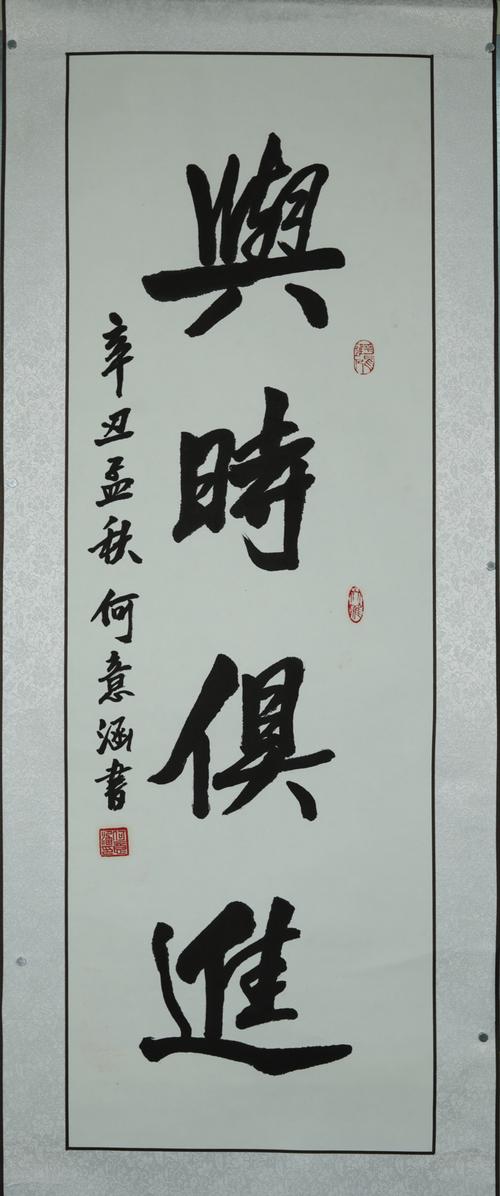 與時俱進
辛丑孟秋 何意涵書